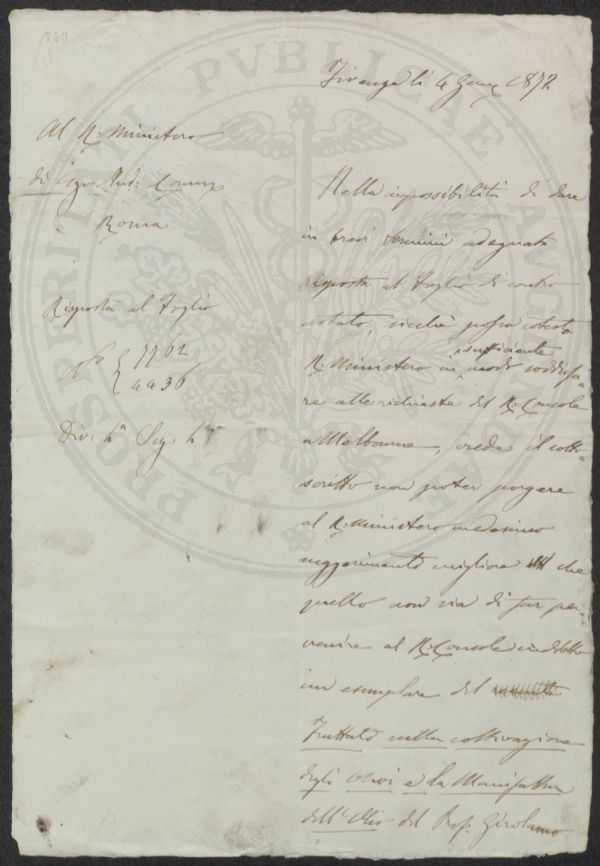 Firenze lì 4 Genn 1872
Al R. Ministero
di Agri. Ind. Comm.
Roma
Risposta al Foglio
N.º 7762
4436
Div. 1ª Sez. 1ª
Nella impossibilità di dare
in brevi termini adeguata
risposta al Foglio di contro
notato, sicchè possa cotesto
R. Ministero in sufficiente modo soddisfa-
re alle richieste del R. Console
a Melbourne, crede il sotto-
scritto non poter porgere
al R. Ministero medesimo
suggerimento migliore che
quello non sia di far per-
venire al R. Console suddetto
un esemplare del
Trattato sulla coltivazione
degli olivi e la Manifattura
dell'Olio del Prof. Girolamo
PROSPERITATI PVBLICAE AVGENDAE